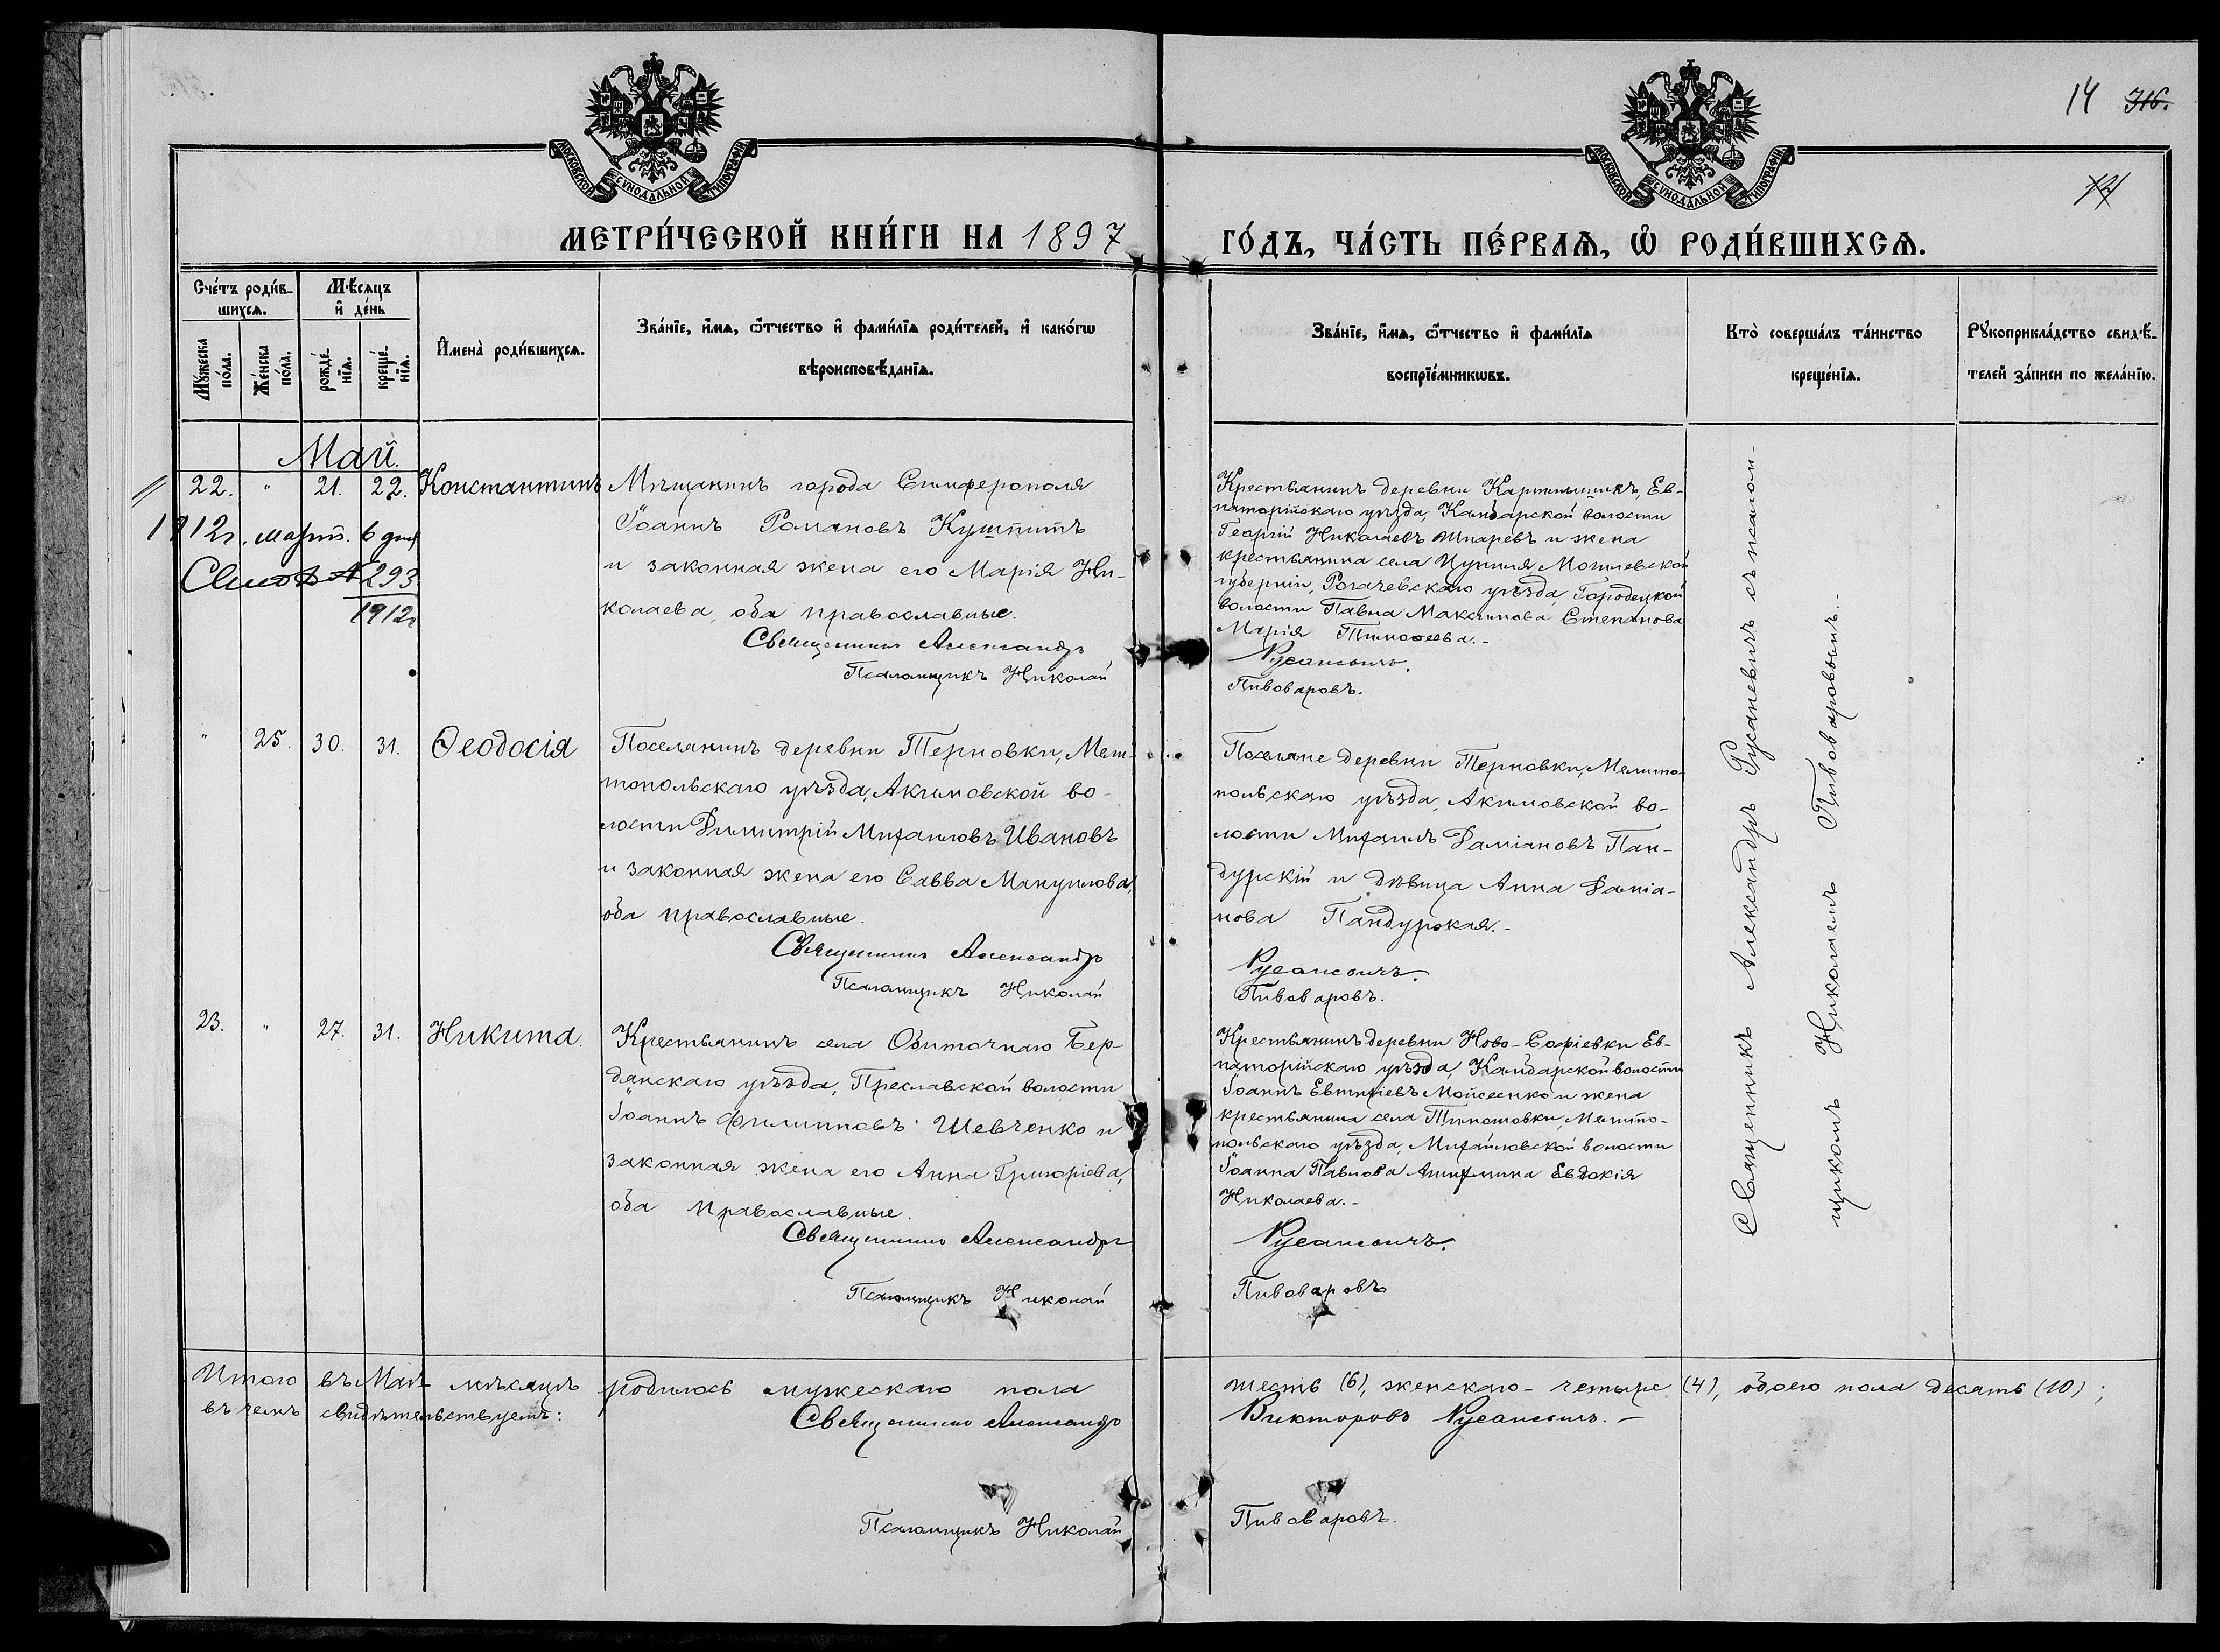 14 316.
14
МОСКОВСКОЙ СѴНОДАЛЬНОЙ ТИПОГРАФІИ
МОСКОВСКОЙ СѴНОДАЛЬНОЙ ТИПОГРАФІИ
МЕТРИ́ЧЕСКОЙ КНИ́ГИ НА 1897 ГО́ДЪ, ЧА́СТЬ ПЕ́РВАѦ, Ѡ РОДИ́ВШИХСѦ.
Сче́тъ роди́в-
шихсѧ.
Мꙋжеска
по́ла.
Же́нска
по́ла.
Мѣ́сѧцъ
и҆ де́нь
рожде́-
нїѧ.
креще́-
нїѧ.
И҆мена̀ роди́вшихсѧ.
Зва́нїе, и҆́мѧ, ѻ҆́тчество и҆ фами́лїѧ роди́телей, и҆ како́гѡ
вѣроисповѣ́данїѧ.
Зва́нїе, и҆́мѧ, ѻ҆́тчество и҆ фами́лїѧ
воспрїе́мникѡвъ.
Кто̀ соверша́лъ та́инство
креще́нїѧ.
Рꙋкоприкла́дство свидѣ́-
телей за́писи по жела́нїю.
Май.
22. " 21. 22. Константинъ
1912г. март. 6 дня
293
1912г
Мѣщанинъ города Симферополя
Іоаннъ Романовъ Кушпитъ
и законная жена его Марія Ни-
колаева, оба православные.
Священникъ Александръ
Псаломщикъ Николай
Крестьянинъ деревни Ев-
паторійскаго уѣзда, волости
Георгій Николаевъ Шпаревъ и жена
крестьянина села Могилевской
губерніи, Рогачевскаго уѣзда, Городецкой
волости Павла Максимова Степанова
Марія Тимоѳеева.-
Русаневичъ.
Пивоваровъ.
" 25. 30. 31. Ѳеодосія
Поселянинъ деревни Терновки, Мели-
топольскаго уѣзда, Акимовской во-
лости Димитрій Михаиловъ Ивановъ
и законная жена его Савва Мануилова,
оба православные.
Священникъ Александръ
Псаломщикъ Николай
Поселяне деревни Терновки, Мелито-
польскаго уѣзда, Акимовской во-
лости Михаилъ Даміановъ Пан-
дурскій и дѣвица Анна Даміа-
нова Пандурская.-
Русаневичъ.
Пивоваровъ.
23. " 27. 31. Никита.
Крестьянинъ села Обиточнаго Бер-
дянскаго уѣзда, Преславской волости
Іоаннъ Филипповъ Шевченко и
законная жена его Анна Григоріева,
оба православные.
Священникъ Александръ
Псаломщикъ Николай
Крестьянинъ деревни Ново-Софіевки Ев-
паторійскаго уѣзда, волости
Іоаннъ Евтихіевъ Мойсеенко и жена
крестьянина села Тимошовки, Мелито-
польскаго уѣзда, Михайловской волости
Іоанна Павлова Евдокія
Николаева.-
Русаневичъ.
Пивоваровъ
Священникъ Александръ Русаневичъ съ псалом-
щикомъ Николаемъ Пивоваровымъ.-
Итого въ Маѣ мѣсяцѣ родилось мужескаго пола шесть (6), женскаго - четыре (4), обоего пола десять (10);
въ чемъ свидѣтельствуемъ: Священникъ Александръ Викторовъ Русаневичъ.-
Псаломщикъ Николай Пивоваровъ.